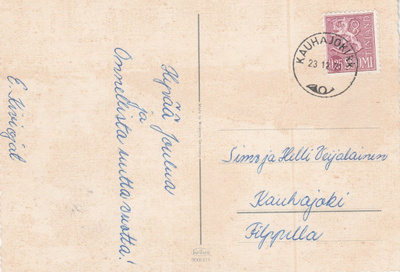 Hyvää Joulua
ja
Onnellista uutta vuotta!
E. Kivioja
KAUHAJOKI
23 12
SUOMI
Simo ja Helli Veijalainen
Kauhajoki
Filppula